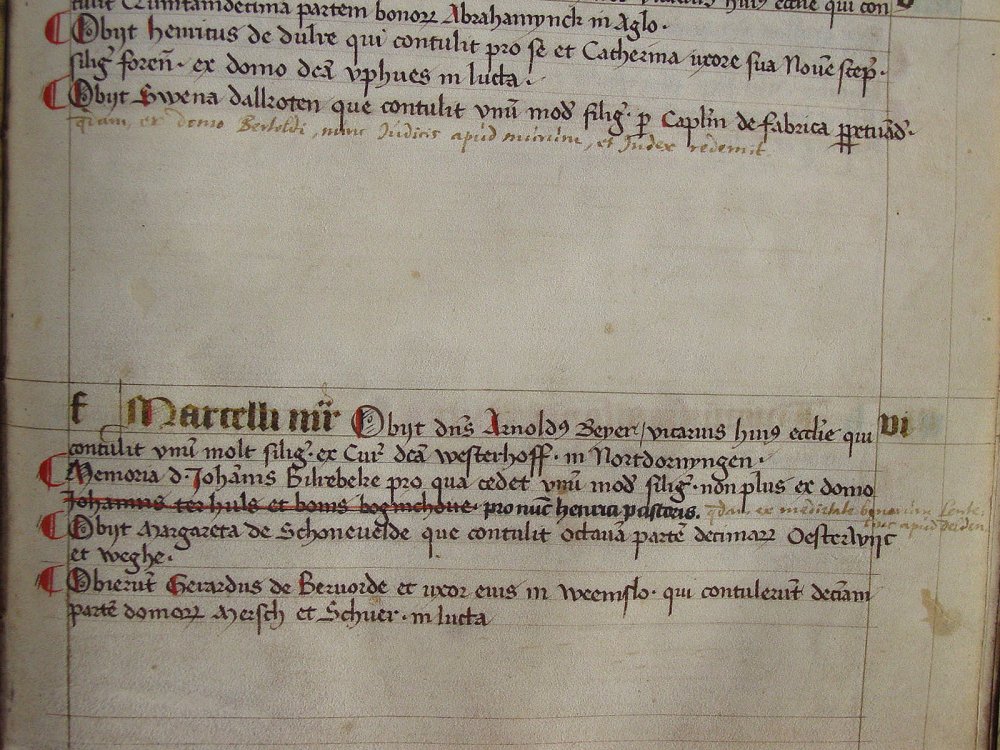 partem bonorꝝ Abrahamynck in Aglo.
Obijt henricus de dulre qui contulit pro se et Catherina uxore sua Novē scep̄.
siliḡ foren̄. ex domo dc̄a vphues in lutta.
Obijt Swena dallroten que contulit vnū mod̄ siliḡ. p̱ Caplīn de fabrica
ex domo Bertoldi, nunc Iudicis apud murum, et Iudex redemit.
f Marcelli mr̄r Obijt dn̄s Arnoldꝰ Beyer, vicarius huiꝰ eccli̅e qui vi
contulit vnū molt siliḡ. ex Cur̄ dc̄a westerhoff. in Nortdornyngen.
Memoria d. Johānis Bilrebeke pro qua cedet vnū mod̄ siliḡ. non plus ex domo
Johannis ter huls et bonis pro nūc henrici pistoris. ex medietate bonorum
Obijt Margareta de Schonevelde que contulit octavā partē decimarꝝ Oesterwijc
et weghe.
Obierūt Gerardus de Bervorde et uxor eius in weemslo. qui contulerūt deciam
partē domorꝝ Mersch et Schuer. in lutta